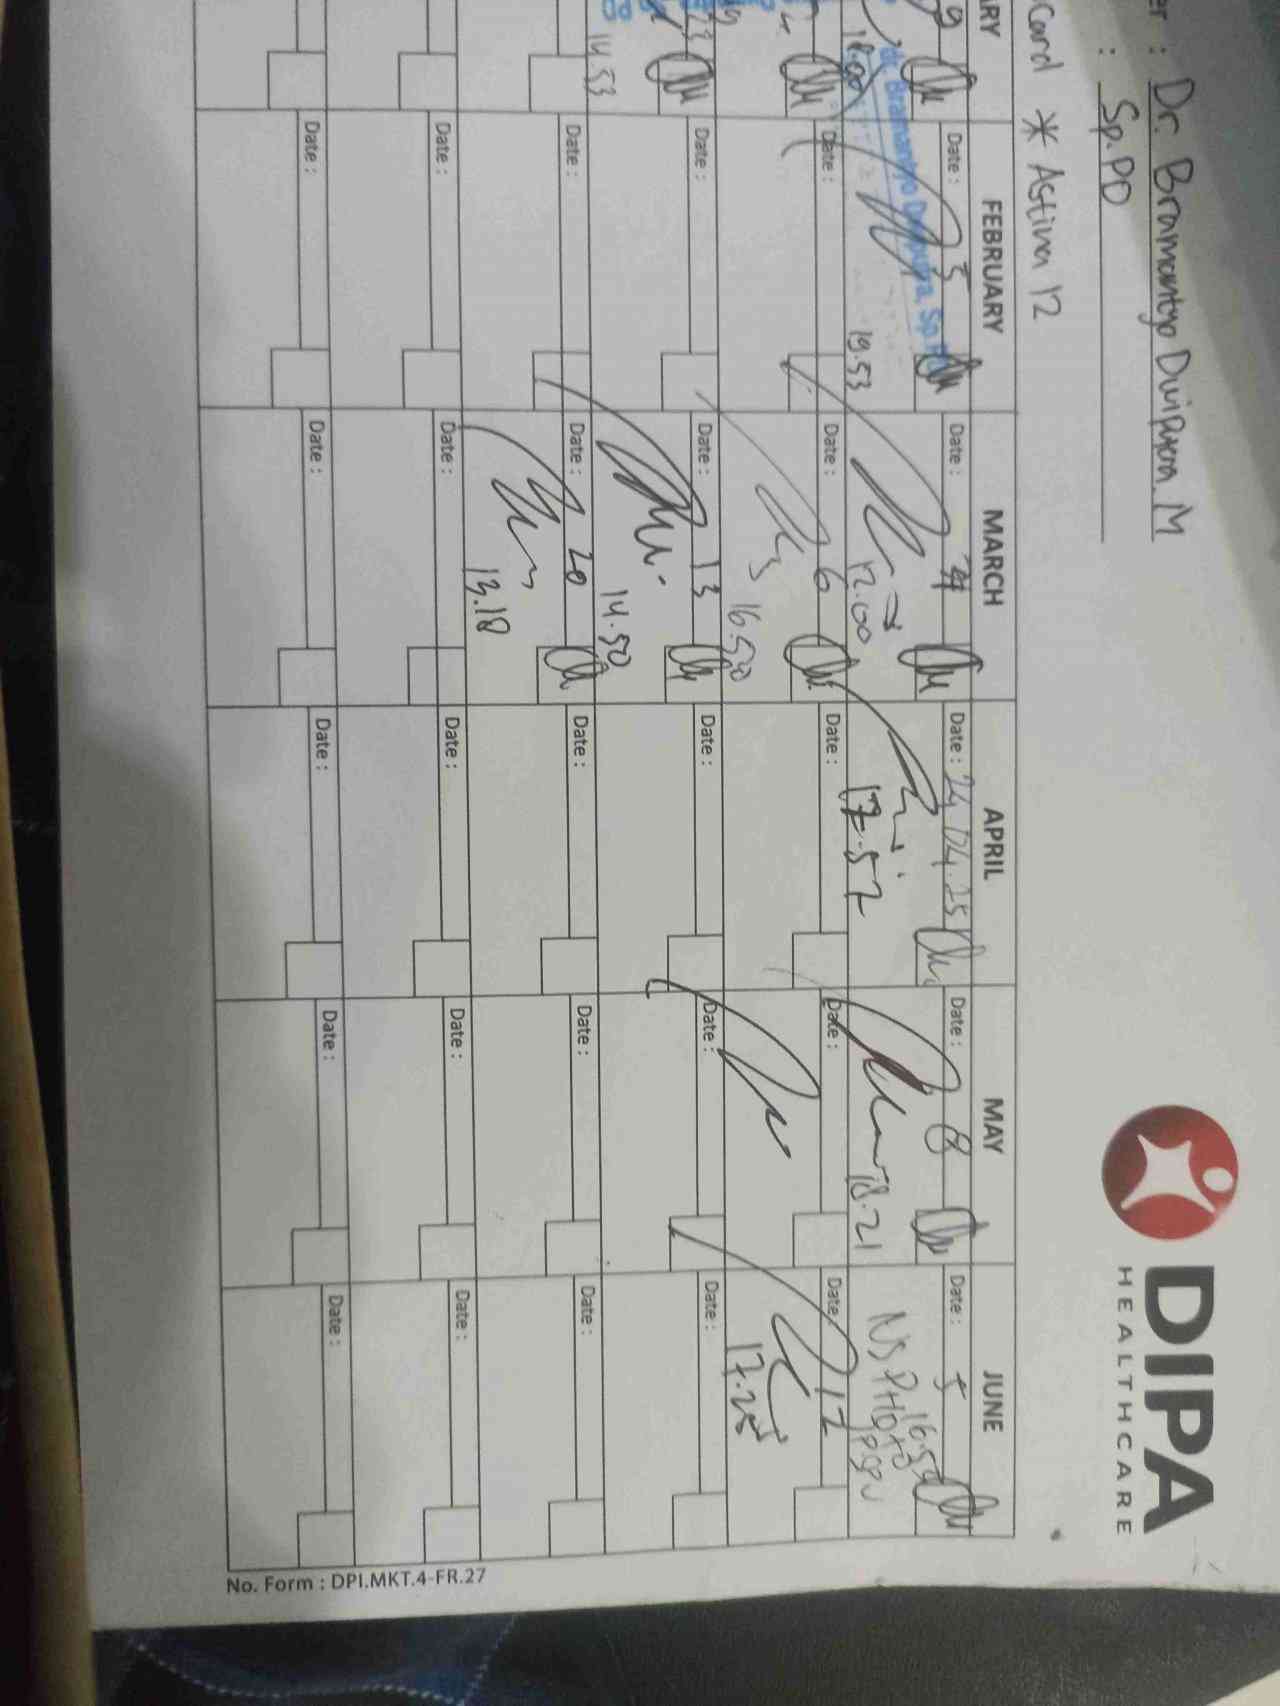 er : Dr. Bramantyo Dwipura. M
: Sp.PD
DIPA
HEALTHCARE
Card * Astiva 12
RY FEBRUARY MARCH APRIL MAY JUNE
9 Date : 5 Date : 4 Date : 24.04.25 Date : 8 Date : 5
18.00 dr. Bramantyo Dwipura, Sp.PD 19.53 12.00 17.57 18.21 16.54
NS PHOTO
Date : Date : 6 Date : Date : Date : 12
16.50 17.25
23 Date : Date : 13 Date : Date : Date :
14.53 14.50
Date : Date : 20 Date : Date : Date :
13.18
Date : Date : Date : Date : Date :
Date : Date : Date : Date : Date :
No. Form : DPI.MKT.4-FR.27